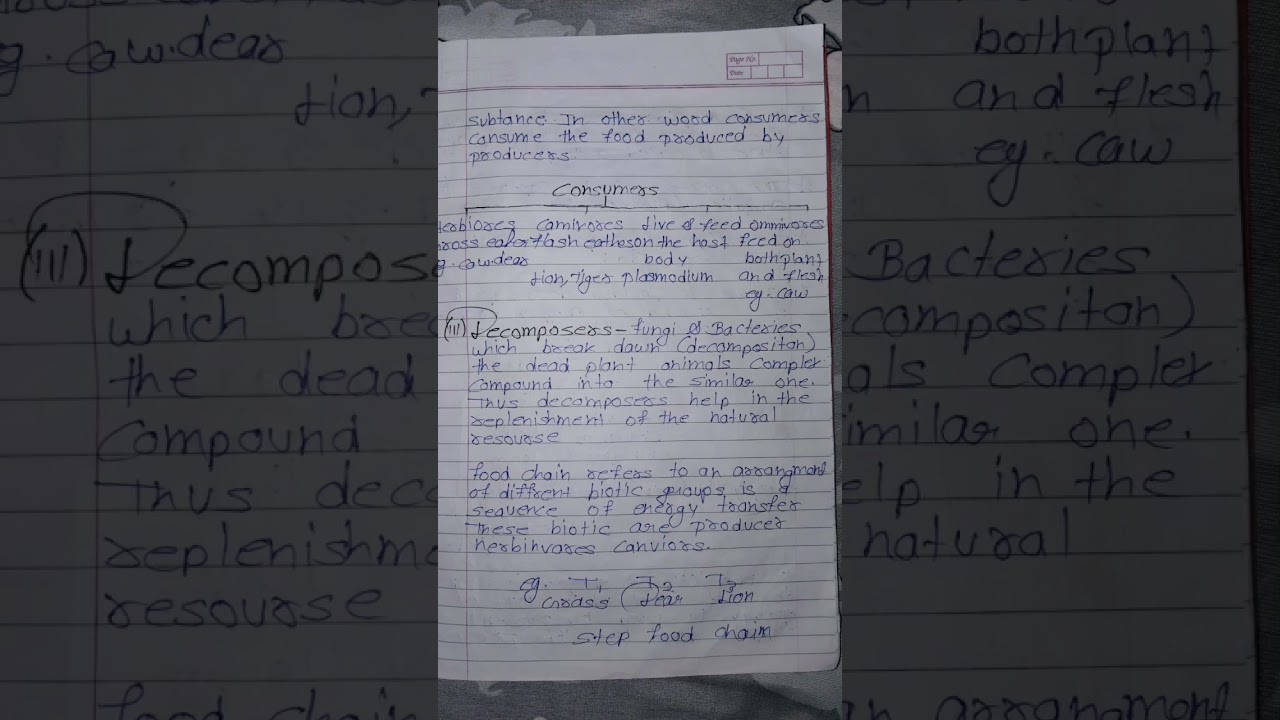 Page No.
Date
subtance In other word consumers
consume the food produced by
producers.
Consumers
Herbiores camivores live & feed ommivores
Gross eater flash eatheson the host feed on
eg. cow.dear body bothplant
lion,Tiger plasmodium and flesh
eg. caw
(III) Decomposers - fungi & Bacteries
which break dawn (decompositon)
the dead plant animals Compler
Compound into the similar one.
Thus decomposers help in the
replenishment of the natural
resourse
food chain refers to an arrangment
of diffrent biotic groups is a
sequence of energy transfer
These biotic are producer
herbihvares Canviors.
eg. T1 T2 T3
Grass Dear Lion
step food chain